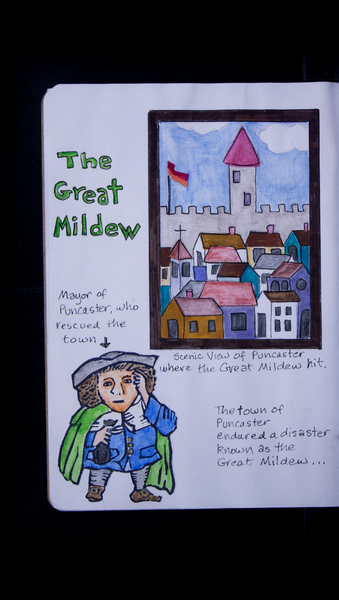 The
Great
Mildew
Mayor of
Puncaster, who
rescued the
town
Scenic View of Puncaster
where the Great Mildew hit.
The town of
Puncaster
endured a disaster
known as the
Great Mildew...